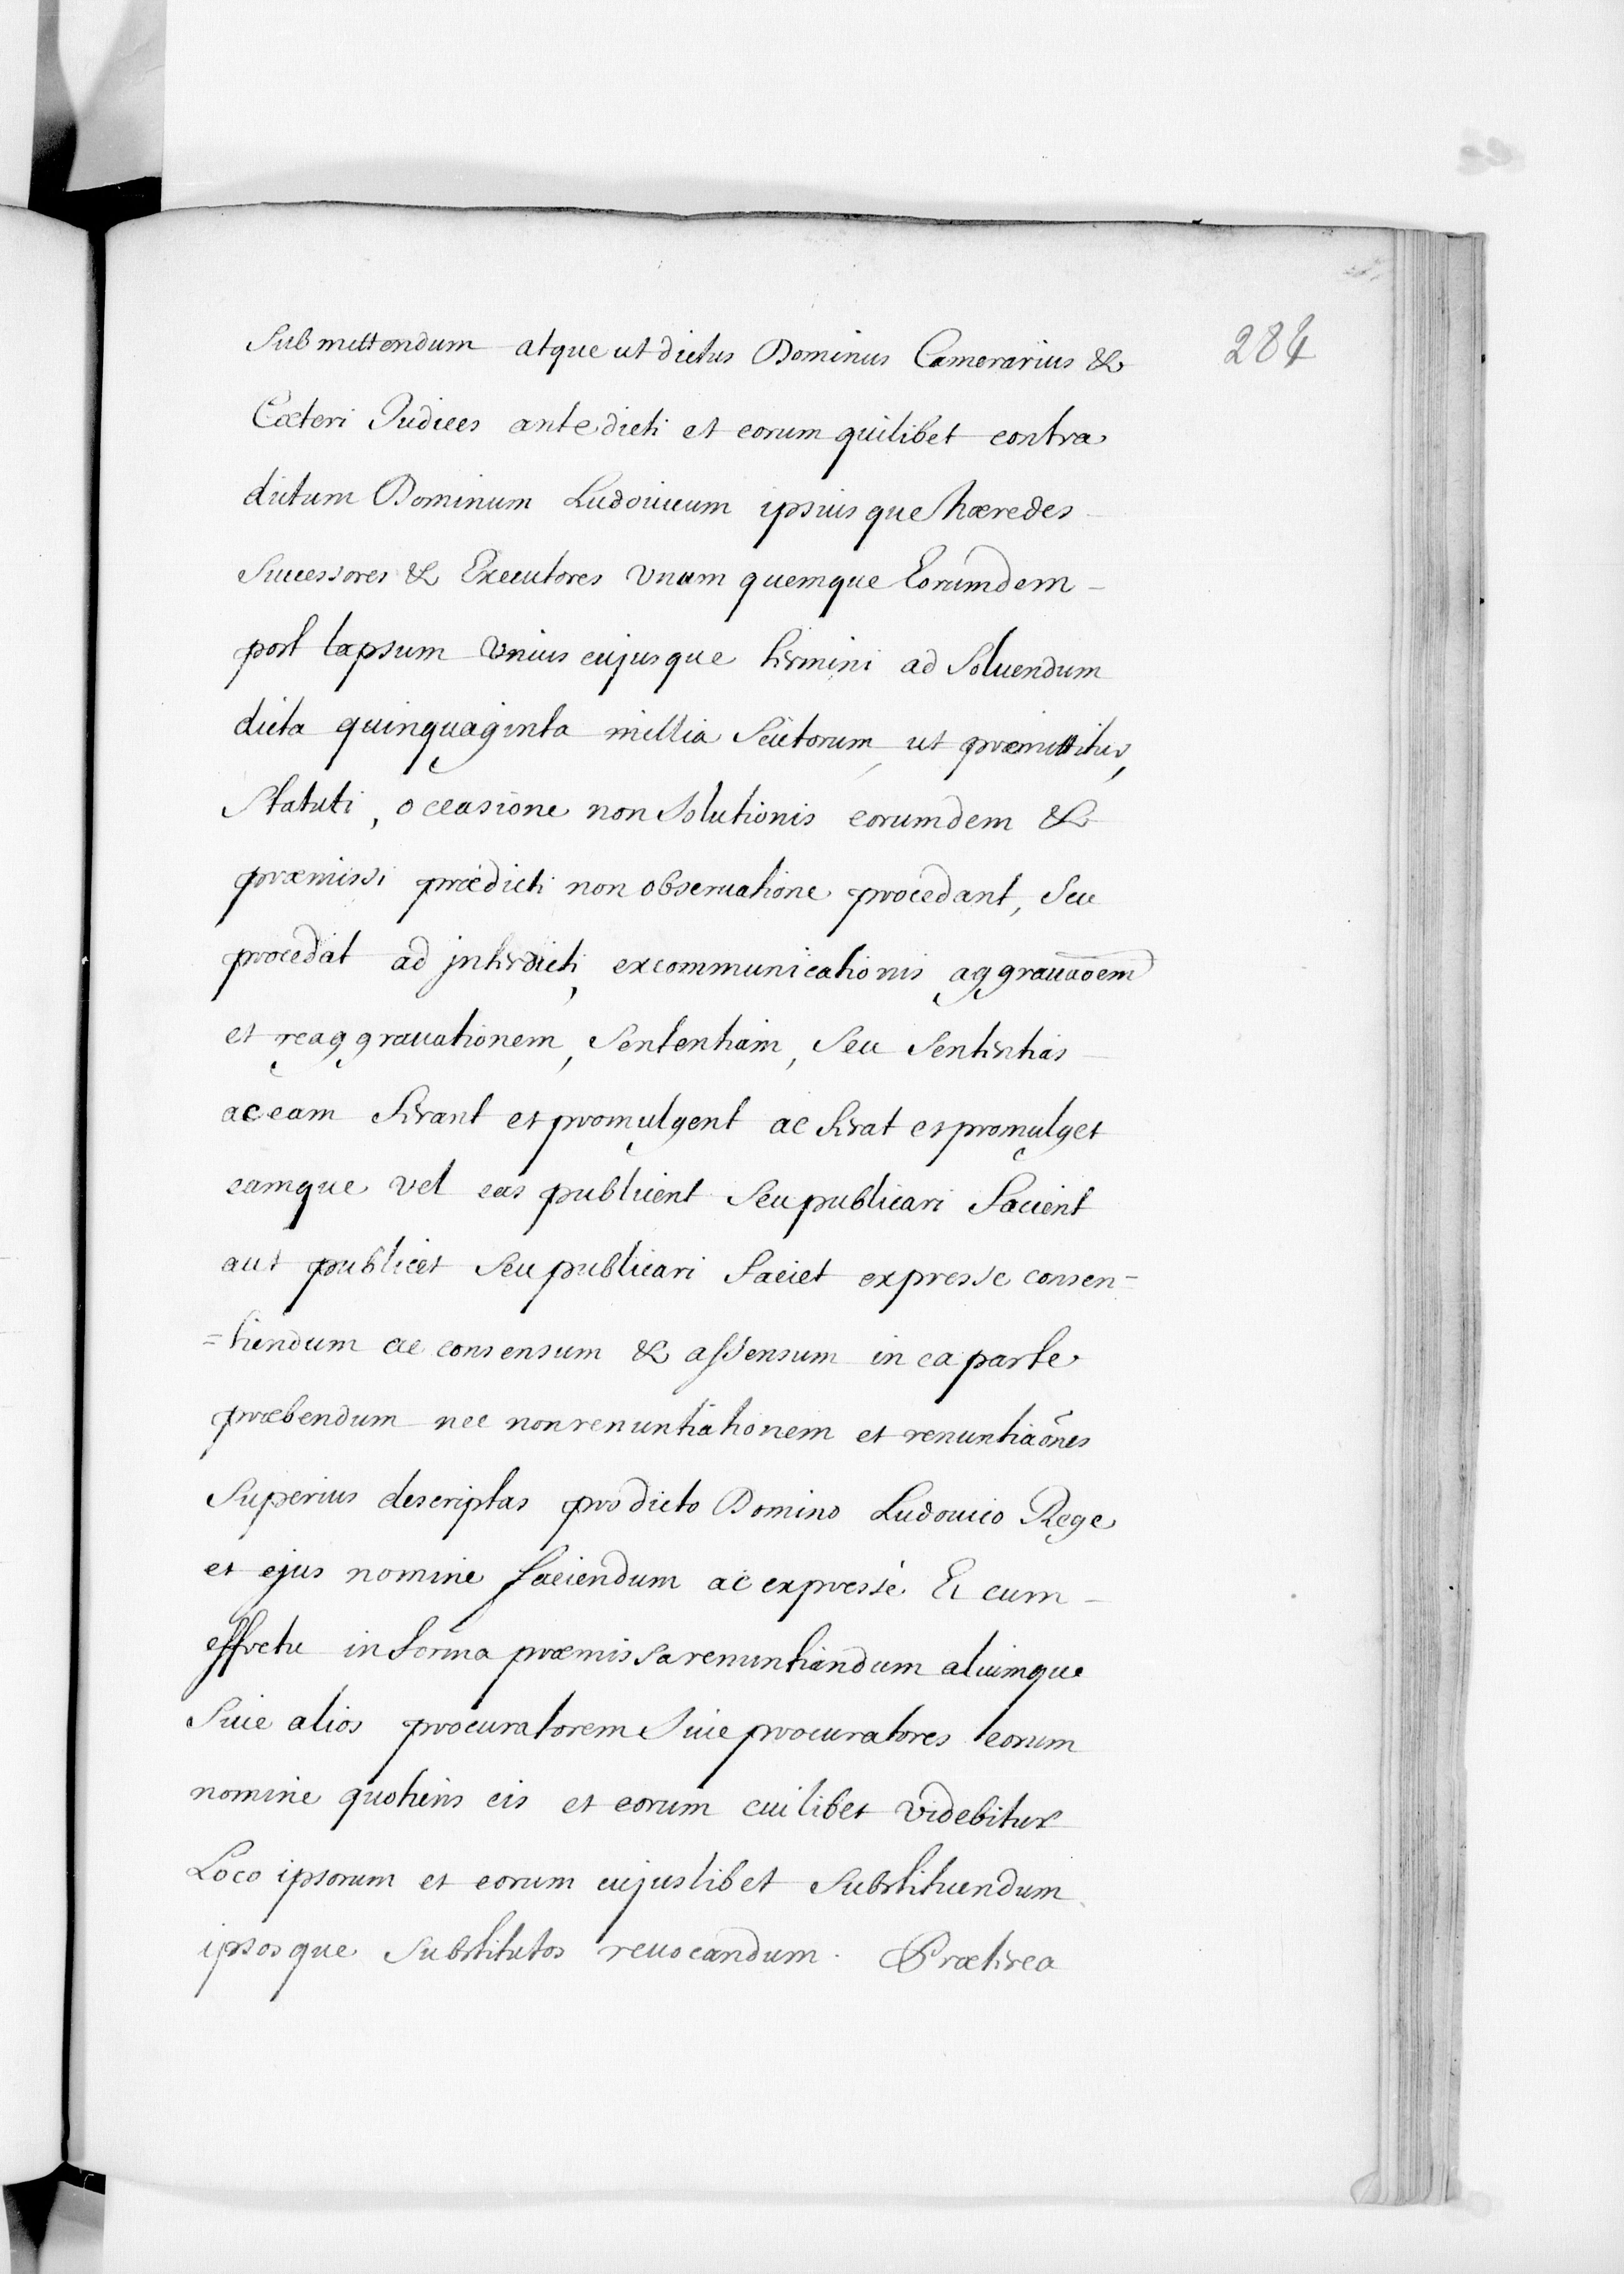 284
Submittendum atque ut dictus Dominus Camerarius &
Cæteri Judices antedicti et eorum quilibet contra
dictum Dominum Ludovicum ipsius que hæredes
Successores & Executores Vnum quemque Eorumdem -
post lapsum Vnius cujusque termini ad Soluendum
dicta quinquaginta millia Scutorum, ut præmittitur,
Statuti, occasione non Solutionis eorumdem &
præmissi prædicti non obseruatione procedant, Seu
procedat ad jnterdicti, excommunicationis aggrauãoem
et reaggrauationem, Sententiam, Seu Sententias -
ac eam ferant et promulgent ac ferat et promulget
eamque vel eas publicent Seu publicari facient
aut publicet Seu publicari faciet expresse consen=
=tiendum ac consensum & assensum in ea parte
præbendum nec non renuntiationem et renuntiaões
Superius descriptas pro dicto Domino Ludouico Rege
et ejus nomine faciendum ac expressè Et cum -
effectu in forma præmissa renuntiandum aliumque
Siue alios procuratorem Siue procuratores eorum
nomine quotiens eis et eorum cuilibet Videbitur
Loco ipsorum et eorum cujuslibet Substituendum
ipsosque Substitutos reuocandum. Præterea